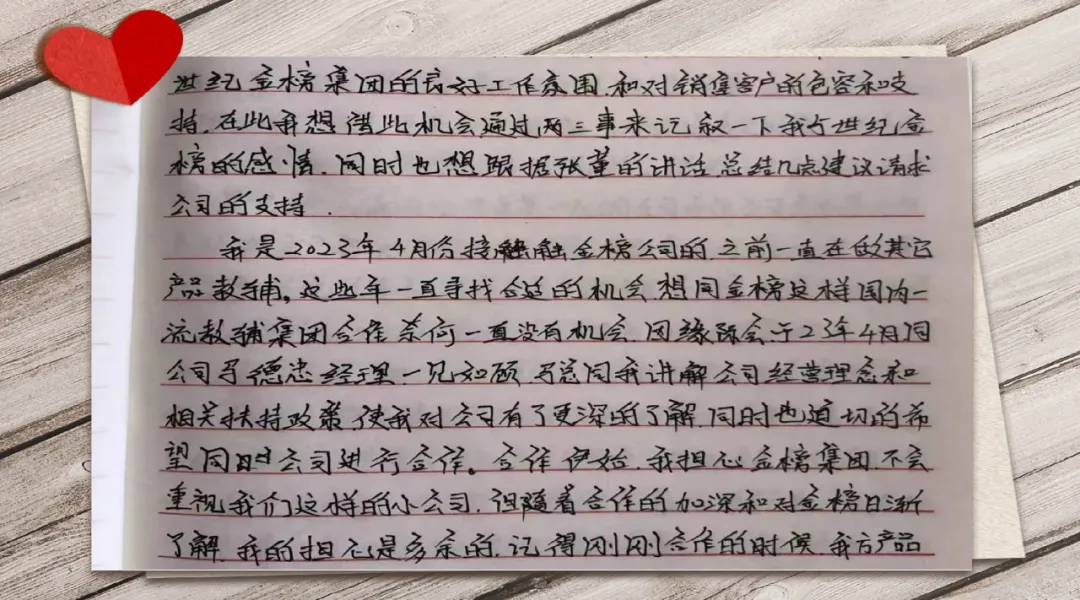 世纪金榜集团的良好工作氛围,和对销售客户的包容和支
持,在此我想借此机会通过两三事来记叙一下我与世纪金
榜的感情,同时也想跟据张董的讲话,总结几点建议请求
公司的支持.
我是2023年4月份接触金榜公司的,之前一直在做其它
产品教辅。这些年一直寻找合适的机会,想同金榜这样国内一
流教辅集团合作,奈何一直没有机会,因缘际会于23年4月同
公司马德忠经理一见如顾,马总同我讲解公司经营理念和
相关扶持政策,使我对公司有了更深的了解,同时也迫切的希
望同时公司进行合作。合作伊始,我担心金榜集团,不会
重视我们这样的小公司,但随着合作的加深和对金榜日渐
了解,我的担心是多余的,记得刚刚合作的时候,我方产品